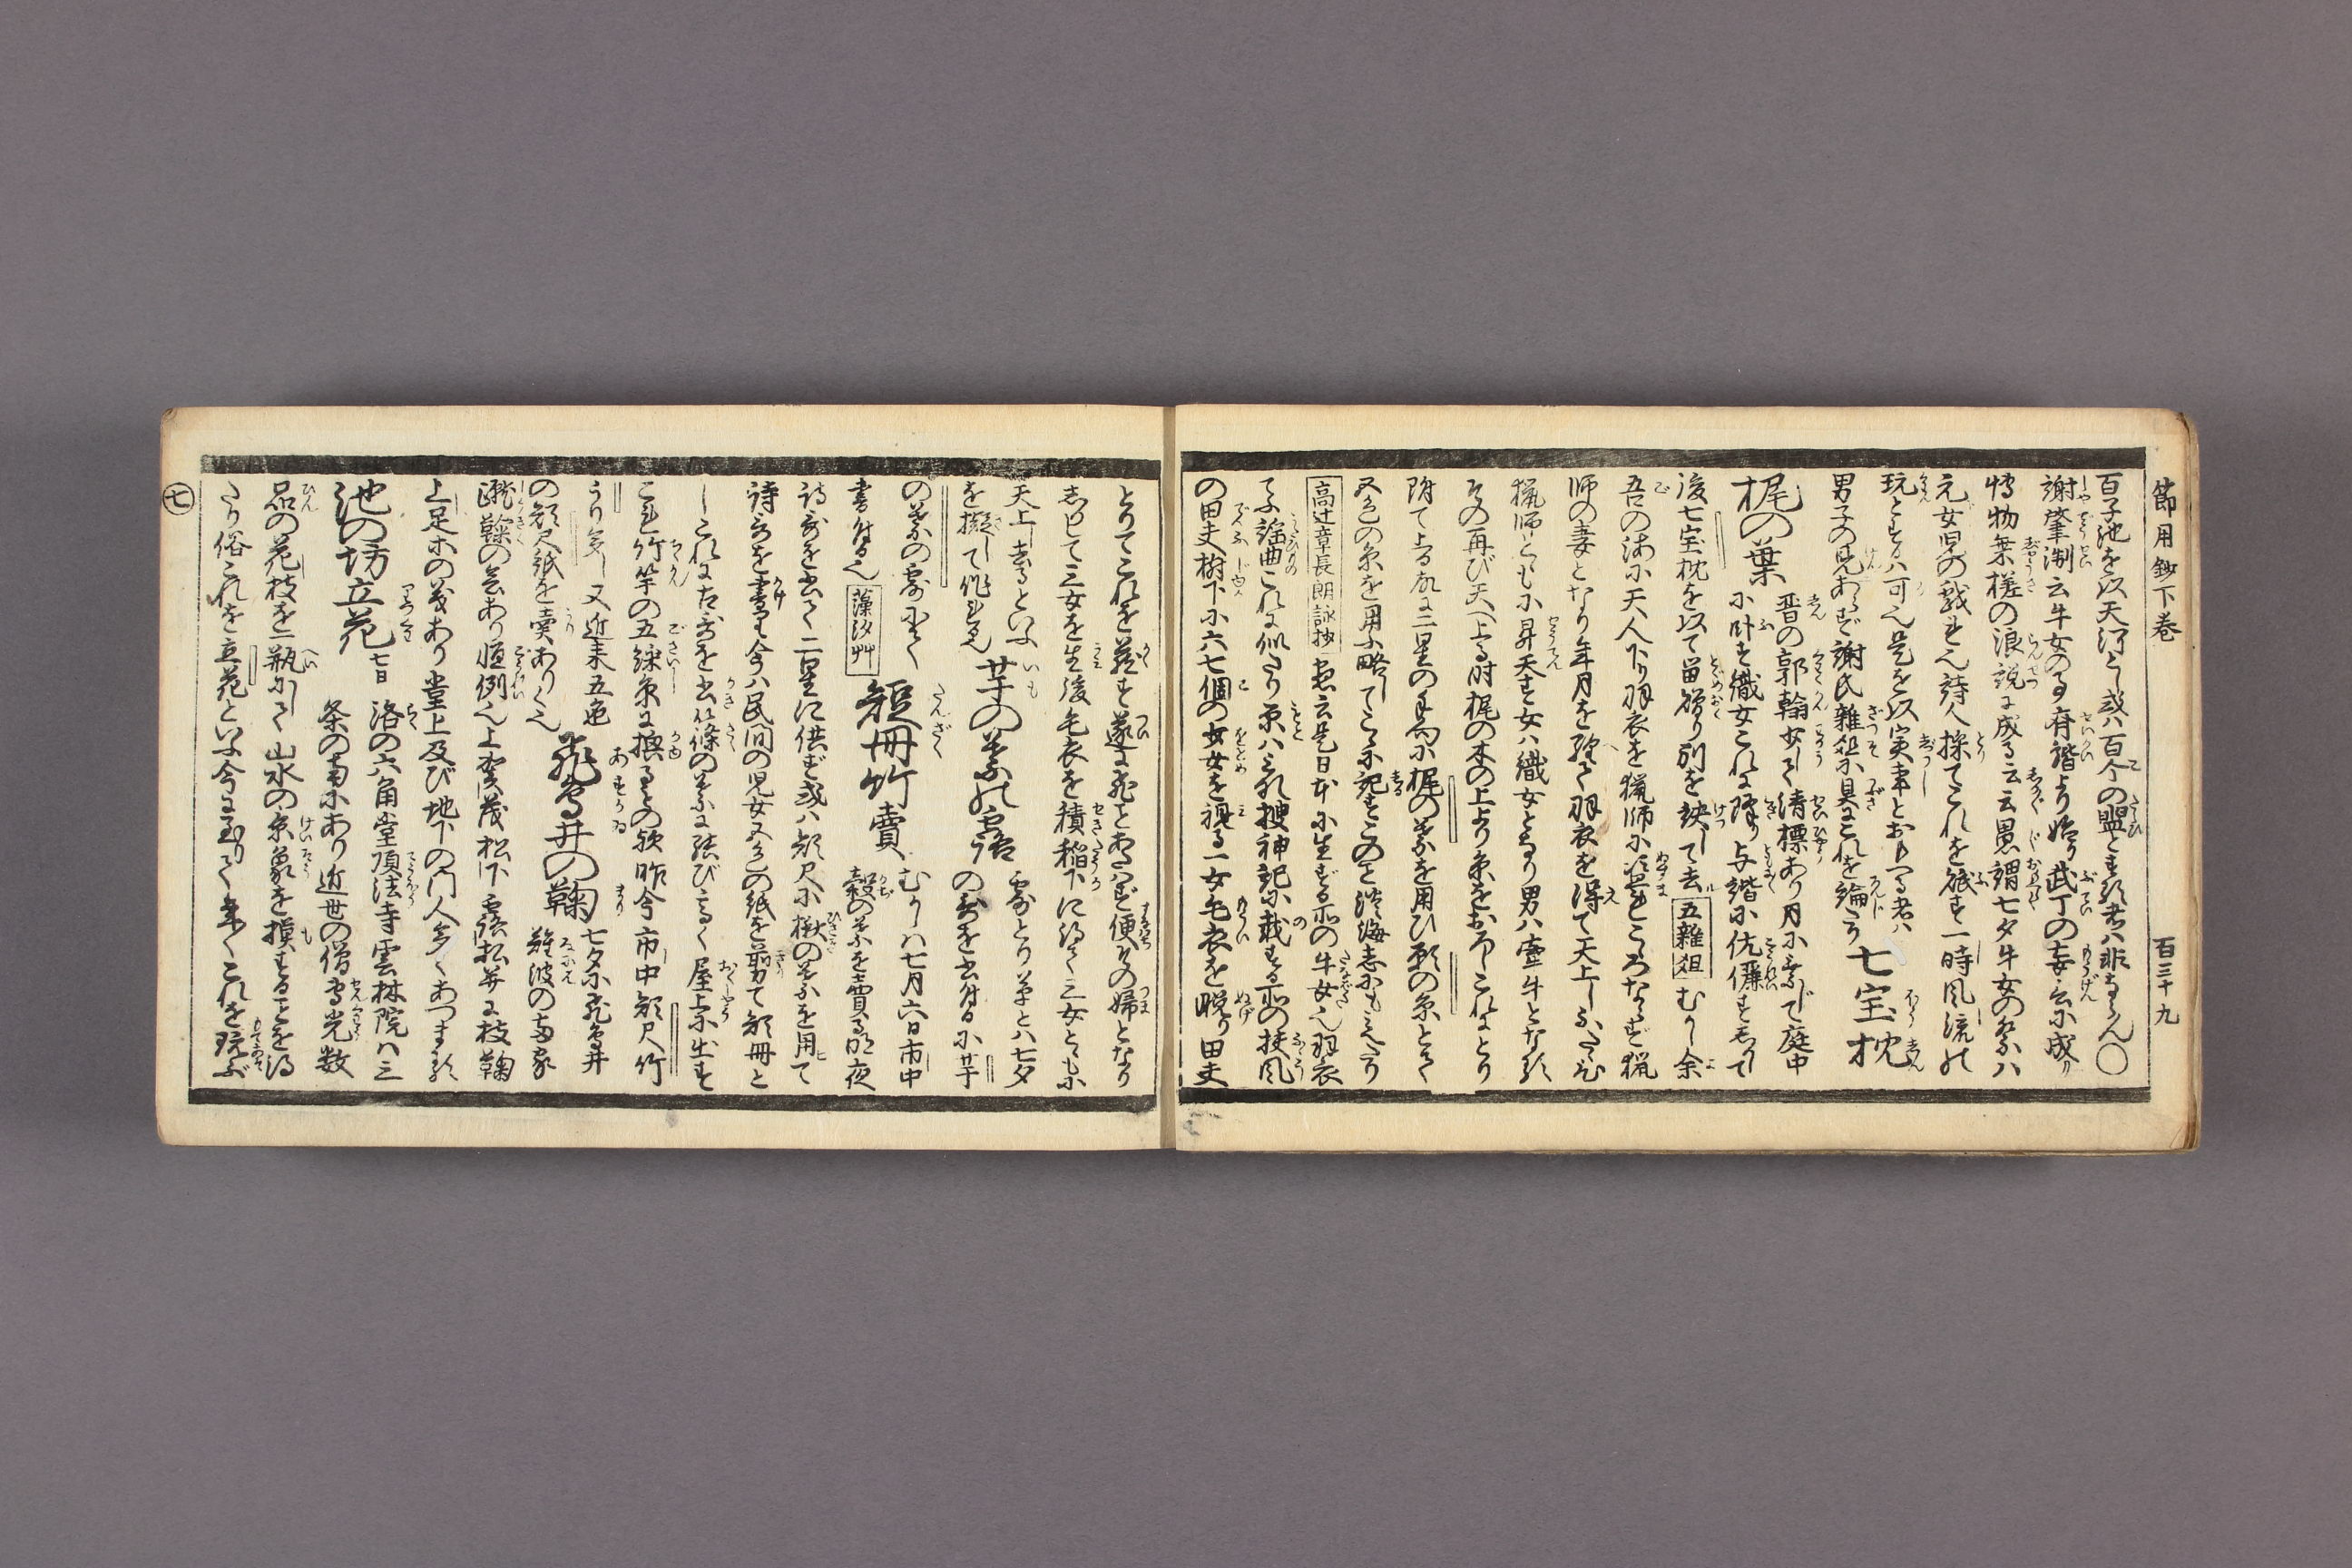 節用鈔下巻 百三十九
百子池を以天河とし或ハ百个の盥とするハ非ならん〇
謝肇淛云牛女の事斉諧より始り武丁の妄言に成り
博物無槎の浪説に成る云云愚謂七夕牛女の祭ハ
元女児の戯れ也詩人採てこれを詠ず一時風流の
玩とするハ可也是を以実事とおもへる者ハ
男子の見あらず謝氏雑俎に具にこれを論ず 七宝枕
梶の葉 晋の郭翰女して清標あり月に乗じて庭中
に臥す織女これに降り与諧に伉儷す去て
後七宝枕を以て留贈り別を訣して去 五雑俎 むかし余
吾の海に天人下り羽衣を猟師に盗れこゝろならず猟
師の妻となり年月を経て羽衣を得て天上しふたゝび
猟師ともに昇天す女ハ織女となり男ハ牽牛となる
その再び天へ上る時梶の木の上より糸をおろしこれにとり
附て上る故に二星の手向に梶の葉を用ひ願の糸とて
五色の糸を用ふ略してこゝに記すこの事淡海志にも見えたり
高辻章長朗詠抄 愚云是日本に生ずる所の牛女也羽衣
てふ謡曲これに似たり原ハこれ捜神記に載する所の扶風
の田夫樹下に六七個の女女を視る一女毛衣を脱り田夫
とりてこれを蔵す遂に飛ことあたハず便その婦となり
居りて三女を生後毛衣を積稲下に得て三女ともに
天上し去るといふ 芋の葉の露 露とり草とハ七夕
を擬して作る名 の歌を書付るに芋
の葉の露にて むかしハ七月六日市中
書付る也 藻汐艸 短冊竹賣 穀の葉を賣る明夜
詩歌を書て二星に供ず或ハ短尺に楸の葉を用て
詩歌を書す今ハ民間の児女五色の紙を剪て短冊と
しこれに古歌を書篠の葉に結び高く屋上に出す
これ竹竿の五綵糸に換るもの歟昨今市中短尺竹
うり多し 又近来五色
の短尺紙を賣ありく也 飛鳥井の鞠 七夕に飛鳥井 難波の両家
蹴鞠の会あり恒例也上賀茂松下露払并に枝鞠
上足等の義あり堂上及び地下の門人多くあつまる
池の坊立花 七日 洛の六角堂頂法寺雲林院ハ三
条の南にあり近世の僧専光数
品の花枝を一瓶にして山水の景象を摸することを得
たり俗これを立花といふ今に至りて来てこれを玩ぶ
七